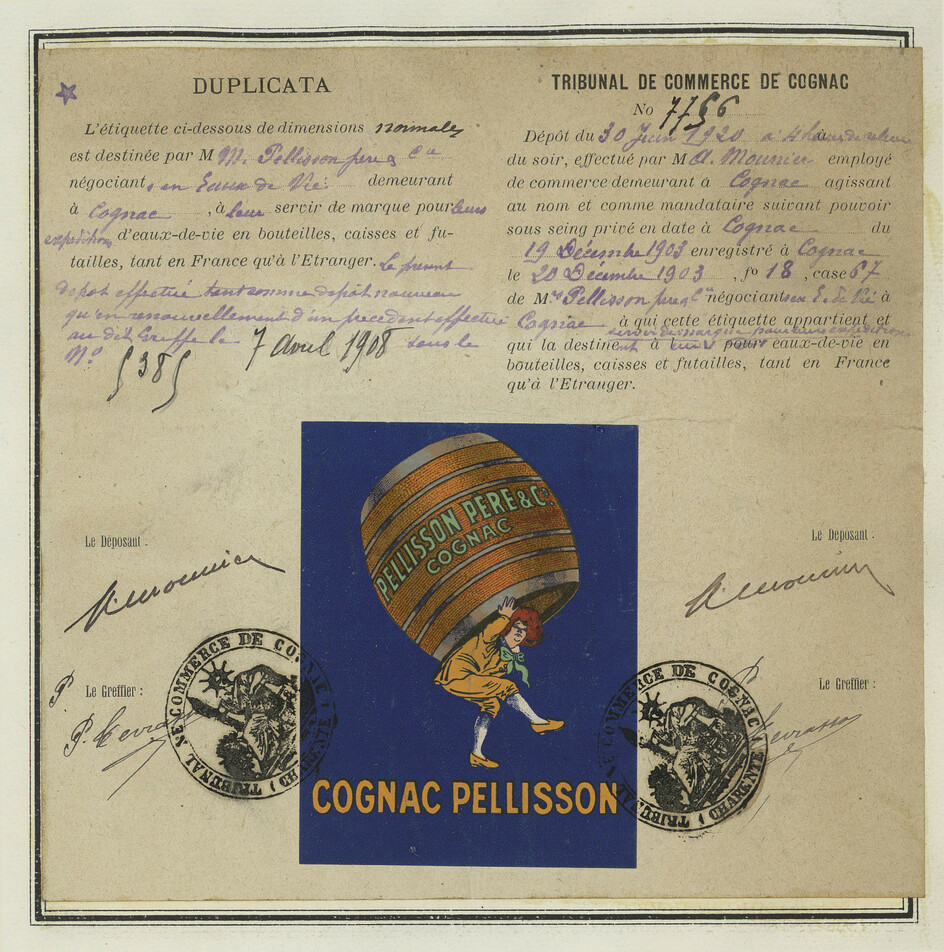 DUPLICATA
L'étiquette ci-dessous de dimensions normales
est destinée par M M. Pellisson père & Cie
négociants en Eaux de Vie demeurant
à Cognac, à leur servir de marque pour leurs
expéditions d'eaux-de-vie en bouteilles, caisses et fu-
tailles, tant en France qu'à l'Etranger. Le présent
dépôt effectué tant comme dépôt nouveau
qu'en renouvellement d'un précédent effectué
au dit Greffe le 7 avril 1908 sous le
No 5385
TRIBUNAL DE COMMERCE DE COGNAC
No 7766
Dépôt du 30 Juin 1920 à 4 heures de relevée
du soir, effectué par M A. Mounier employé
de commerce demeurant à Cognac agissant
au nom et comme mandataire suivant pouvoir
sous seing privé en date à Cognac du
19 Décembre 1903 enregistré à Cognac
le 20 Décembre 1903, fo 18, case 67
de Mrs Pellisson père & Cie négociants en E. de Vie à
Cognac à qui cette étiquette appartient et
servir de marque pour leurs expéditions
qui la destinent à leur pour eaux-de-vie en
bouteilles, caisses et futailles, tant en France
qu'à l'Etranger.
PELLISSON PERE & Co
COGNAC
COGNAC PELLISSON
Le Déposant :
A. Mounier
Le Greffier :
TRIBUNAL DE COMMERCE DE COGNAC (CHARENTE)
Le Déposant :
A. Mounier
Le Greffier :
TRIBUNAL DE COMMERCE DE COGNAC (CHARENTE)